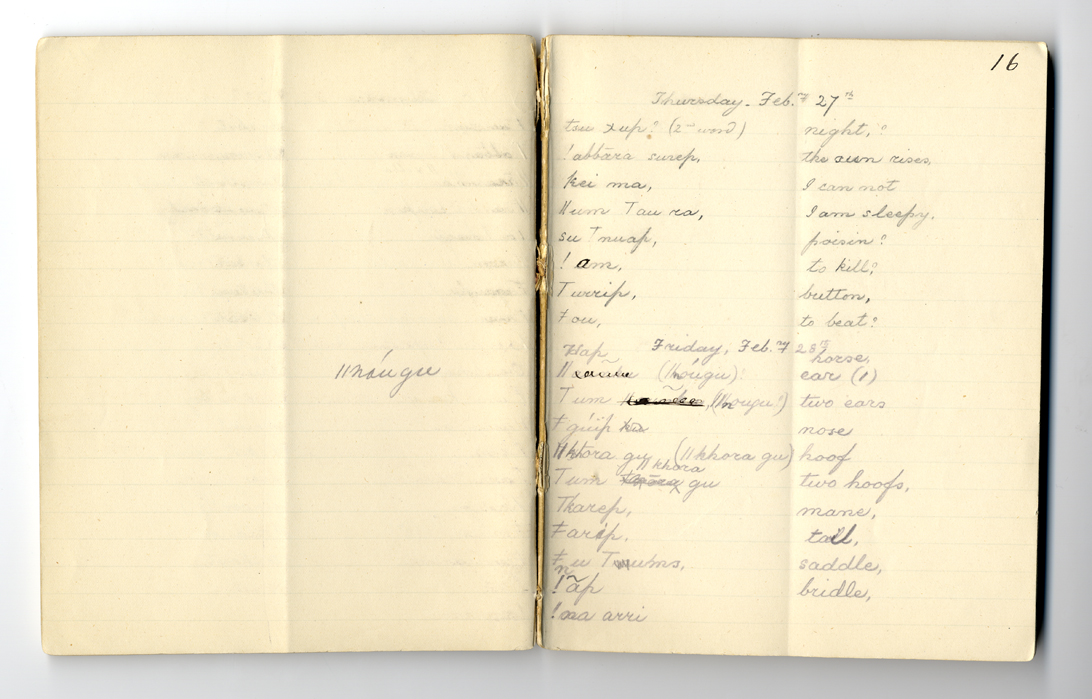 ǁnáugu
16
Thursday. Feb.ʸ 27ᵗʰ
tsu xup? (2ⁿᵈ word) night,?
!abbāra surep, the sun rises,
kei ma, I can not
ǁum Tau ra, I am sleepy.
su Tnuap, poisin?
! am, to kill?
Turrip, button,
ǂou, to beat?
Friday, Feb.ʸ 28ᵗʰ
Hap horse,
ǁ (ǁnóugu)! ear (1)
Tum (ǁnougu!) two ears
ǂgúip nose
ǁkhora gu (ǁkhora gu) hoof
Tum ǁkhora gu two hoofs,
Tkarep, mane,
ǂarip, tail,
ǂnu Tnums, saddle,
!ãp bridle,
!na arri